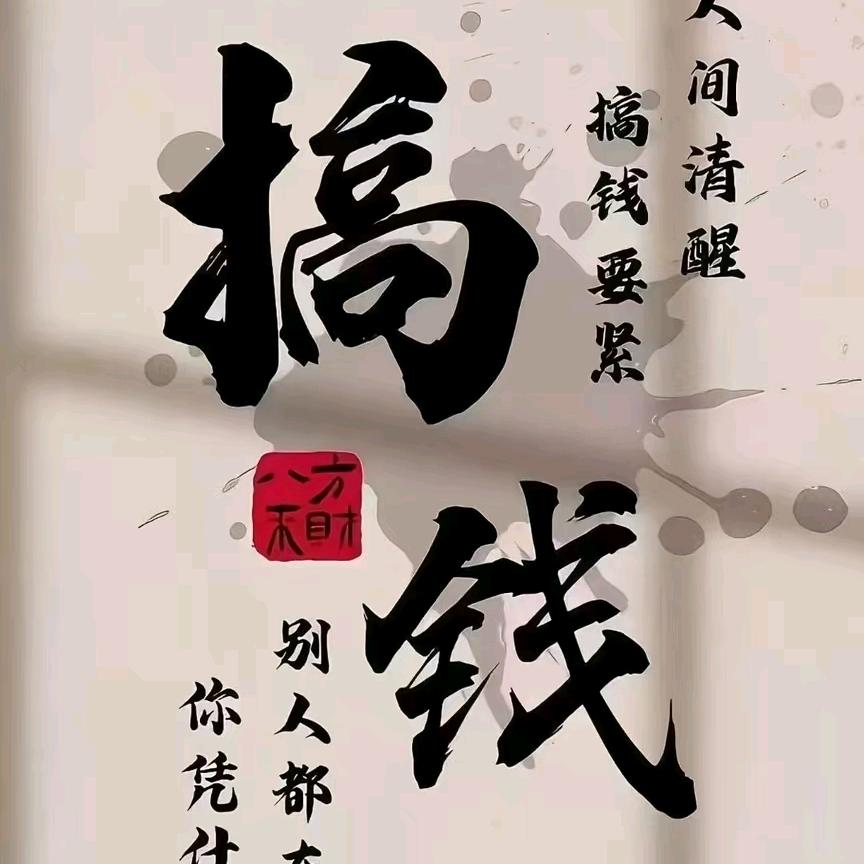 人间清醒
搞钱要紧
搞钱
八方
来财
别人都在
你凭什